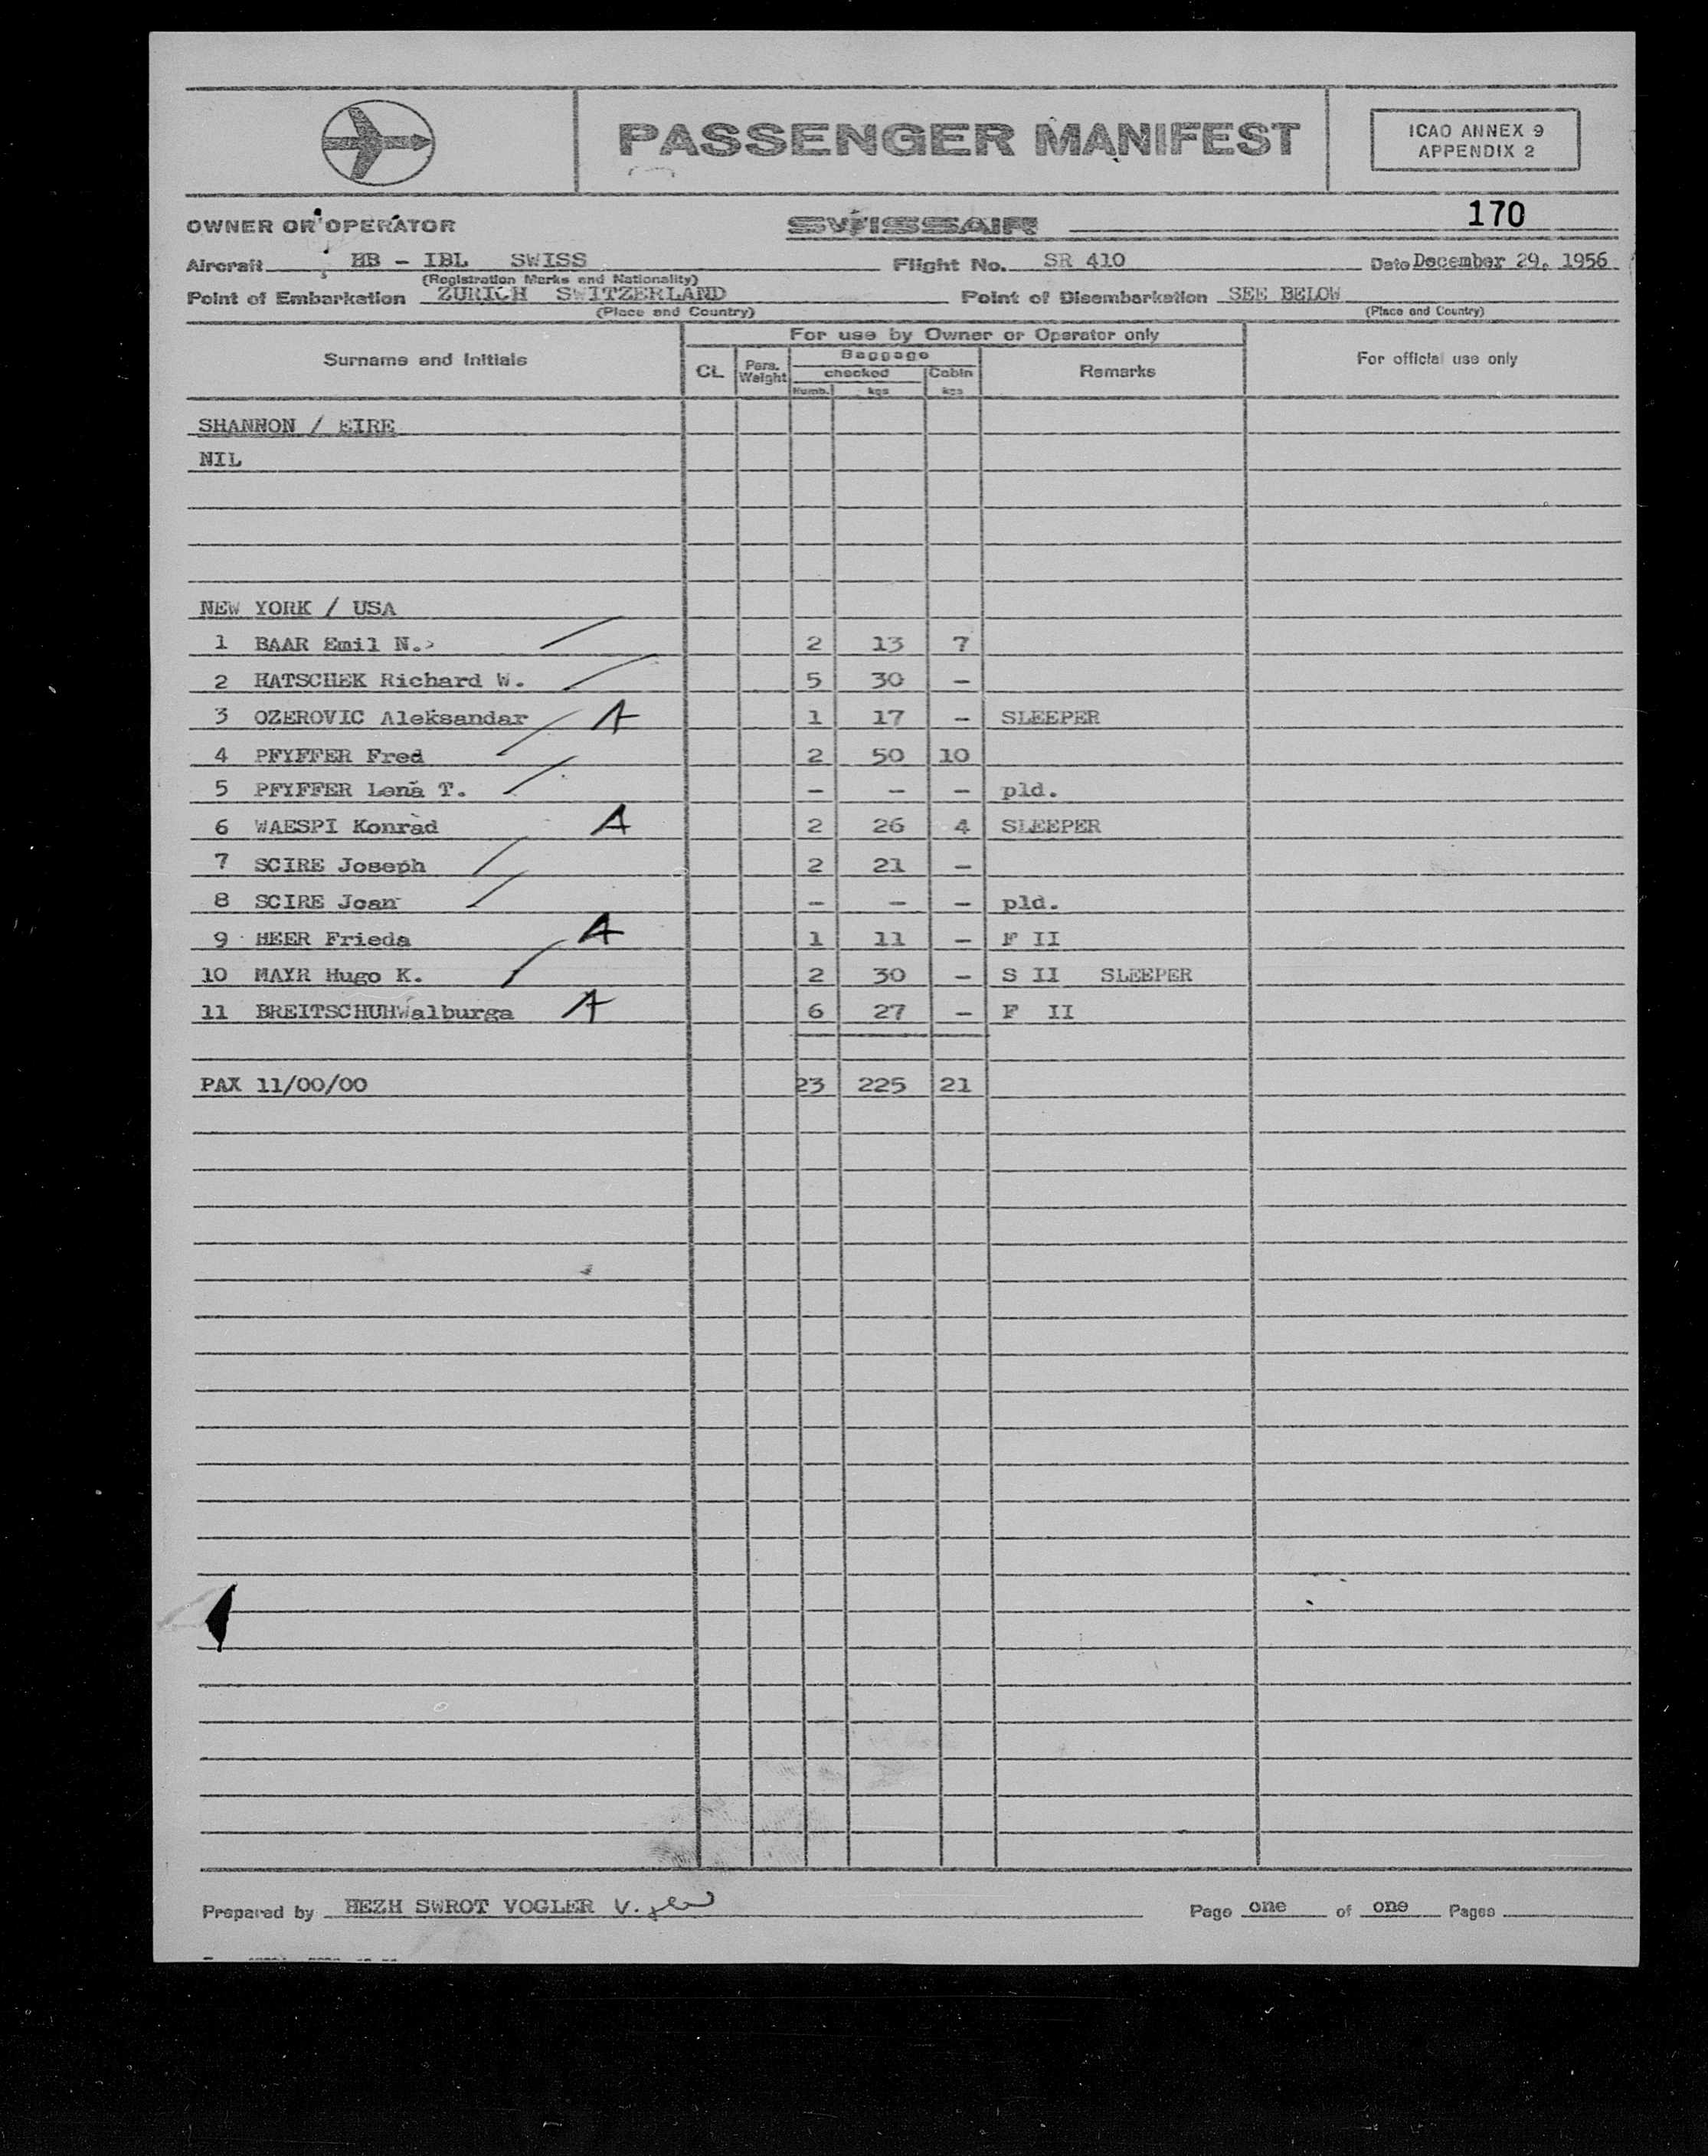 PASSENGER MANIFEST
ICAO ANNEX 9
APPENDIX 2
170
OWNER OR OPERATOR SWISSAIR
Aircraft HB - IBL SWISS Flight No. SR 410 Date December 29, 1956
(Registration Marks and Nationality)
Point of Embarkation ZURICH SWITZERLAND Point of Disembarkation SEE BELOW
(Place and Country) (Place and Country)
For use by Owner or Operator only
Surname and Initials CL Pers. Weight Baggage Remarks For official use only
checked Cabin
Numb. kgs kgs
SHANNON / EIRE
NIL
NEW YORK / USA
1 BAAR Emil N. 2 13 7
2 HATSCHEK Richard W. 5 30 -
3 OZEROVIC Aleksandar A 1 17 - SLEEPER
4 PFYFFER Fred 2 50 10
5 PFYFFER Lena T. - - - pld.
6 WAESPI Konrad A 2 26 4 SLEEPER
7 SCIRE Joseph 2 21 -
8 SCIRE Joan - - - pld.
9 HEER Frieda A 1 11 - F II
10 MAYR Hugo K. 2 30 - S II SLEEPER
11 BREITSCHUHWalburga A 6 27 - F II
PAX 11/00/00 23 225 21
Prepared by HEZH SWROT VOGLER Page one of one Pages